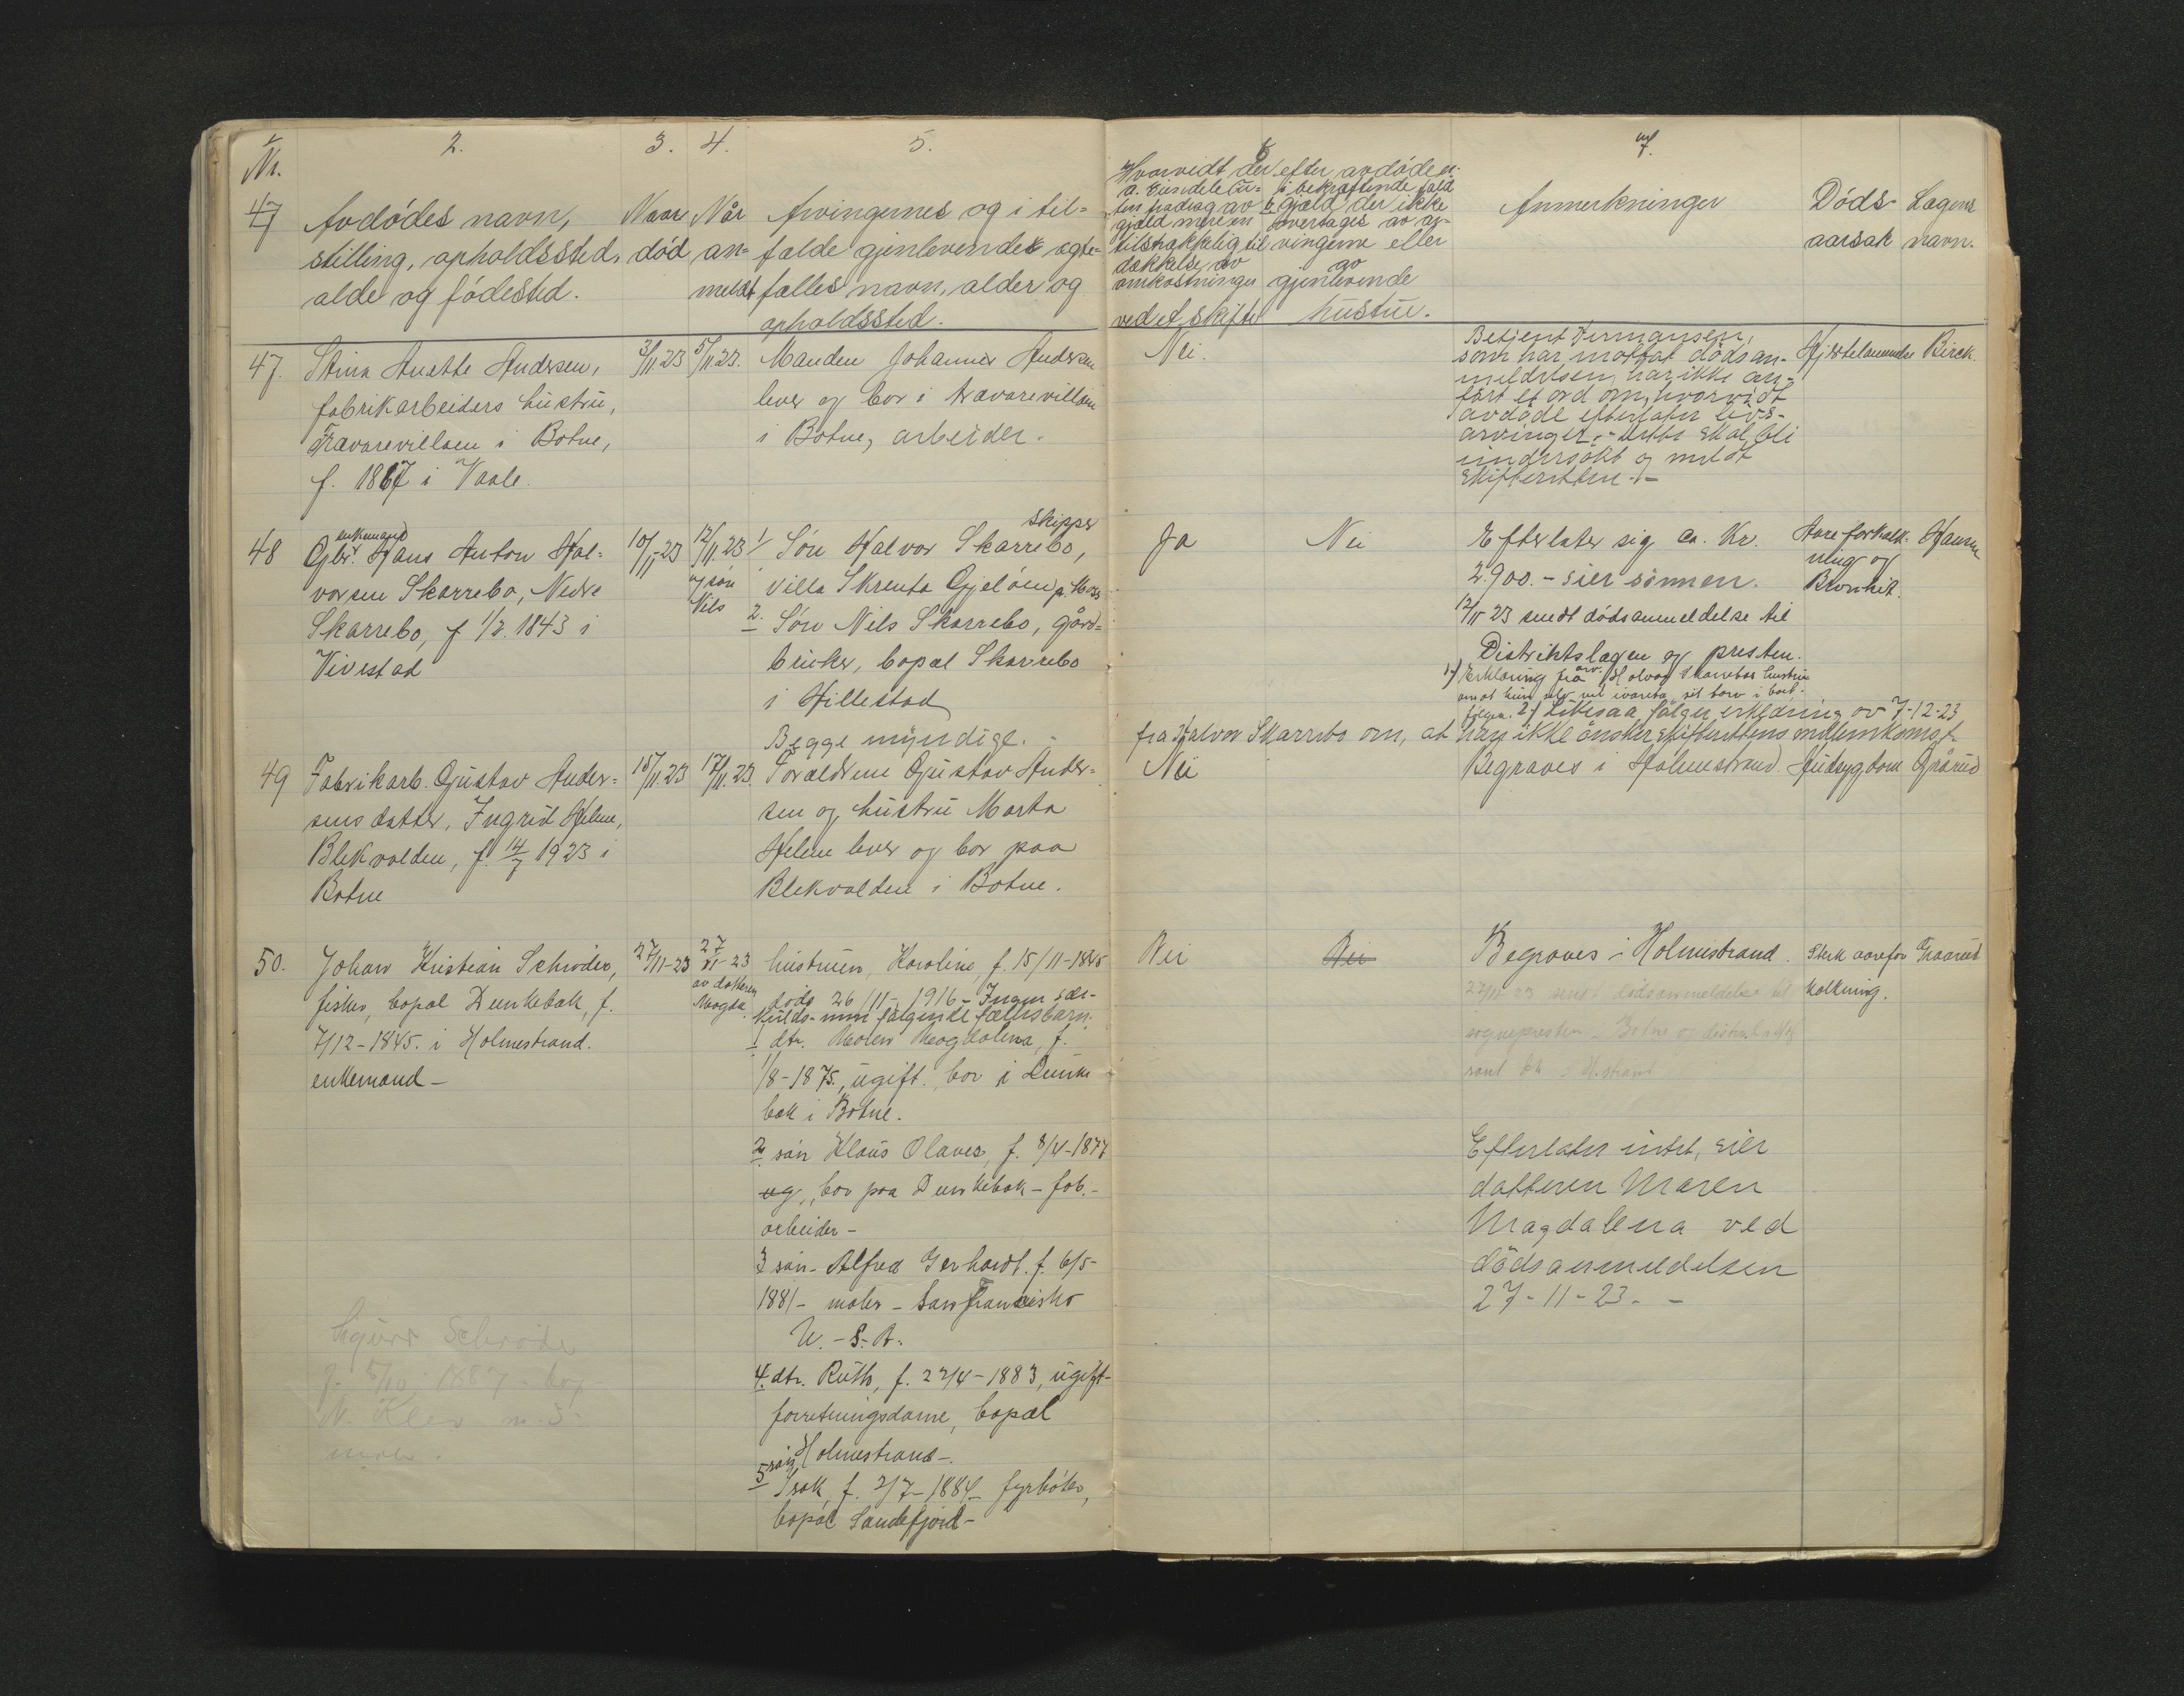 Nr.
2.
3.
4.
5.
6
7.
47
Avdödes navn,
stilling, opholdssted,
alde og födested.
Naar
död
Når
an-
meldt
Arvingernes og i til-
fælde gjenlevende ægte-
fælles navn, alder og
opholdssted.
Hvorvidt der efter avdöde er:
a. Eiendele u-
ten fradrag av
gjæld mere en
tilstrækkelig til
dækkelse av
omkostninger
ved et skifte
i bekræftende fald
b gjæld der ikke
overtages av ar-
vingerne eller
av
gjenlevende
hustru.
Anmerkninger
Döds-
aarsak
Lægens
navn.
47.
Stina Anette Andersen,
fabrikarbeiders hustru,
Trævarevillaen i Botne,
f. 1867 i Vaale.
3/11.23
5/11.23.
Manden Johannes Andersen
lever og bor i trævarevillaen
i Botne, arbeider.
Nei.
Betjent Hermansen,
som har mottat dödsan-
meldelsen, har ikke an-
fört et ord om, hvorvidt
avdöde efterlater livs-
arvinger. - Dette skal bli
undersökt og meldt
Skifteretten. -
Hjertelammelse
Birck.
48
enkemand
Gbr. Hans Anton Hal-
vorsen Skarrebo, Nedre
Skarrebo, f 1/2. 1843 i
Vivestad
10/11-23
12/11.23
af sön
Nils
skipper
1/ Sön Halvor Skarrebo,
villa Skrenta Gjelöen p. Moss
2. Sön Nils Skarrebo, gård-
bruker, bopæl Skarrebo
i Hillestad
Begge myndige. -
Ja
Nei
Efterlater sig ca. Kr.
2.900. - sier sönnen.
12/11 23 sendt dödsanmeldelse til
Distriktslægen og presten.
1) Erklæring fra arv. Halvor Skarrebos hustru
om at hun selv vil ivareta sit tarv i boet
följer. 2) Likesaa fölger erklæring av 7-12-23
fra Halvor Skarrebo om, at han ikke önsker skifterettens mellemkomst.
Aareforkalk-
ning og
Bronkit.
Hansen
49
Fabrikarb. Gustav Ander-
sens datter, Ingrid Helene,
Blekvolden, f. 14/7 1923 i
Botne
15/11.23
17/11.23.
Forældrene Gustav Ander-
sen og hustru Marta
Helene lever og bor paa
Blekvolden i Botne.
Nei
Begraves i Holmestrand.
Hudsygdom
Grårud
50.
Johan Kristian Schröder,
fisker, bopæl Dunkebæk, f.
7/12-1845. i Holmestrand.
enkemand -
27/11-23
27/11-23
av datteren
Magda.
hustruen, Karoline f. 15/11-1845
döde 26/11-1916 - Ingen sær-
kulds- men fölgende fællesbarn.
1 dtr. Maren Magdalena, f.
1/8-1875., ugift. bor i Dunke-
bæk i Botne.
2. sön Klaus Olaves, f. 8/4-1877
ug., bor paa Dunkebæk - fab.-
arbeider -
3 sön - Alfred Gerhardt. f. 6/5-
1881 - maler - San Francisko
U. - S. A.
4. dtr. Ruth, f. 22/4-1883, ugift-
forretningsdame, bopæl
Holmestrand -.
5 sön
Isak, f. 2/7-1884 - fyrböter,
bopæl Sandefjord -
Nei
Nei
Begraves i Holmestrand.
27/11 23 sendt dödsanmeldelse til
sognepresten i Botne og
samt i H.strand
Sterk aarefor-
kalkning.
Graarud
Efterlater intet, sier
datteren Maren
Magdalena ved
dödsanmeldelsen
27-11-23. -
Sigurd Schröder
f. 5/10 1887 - bop
N. Klev
maler.